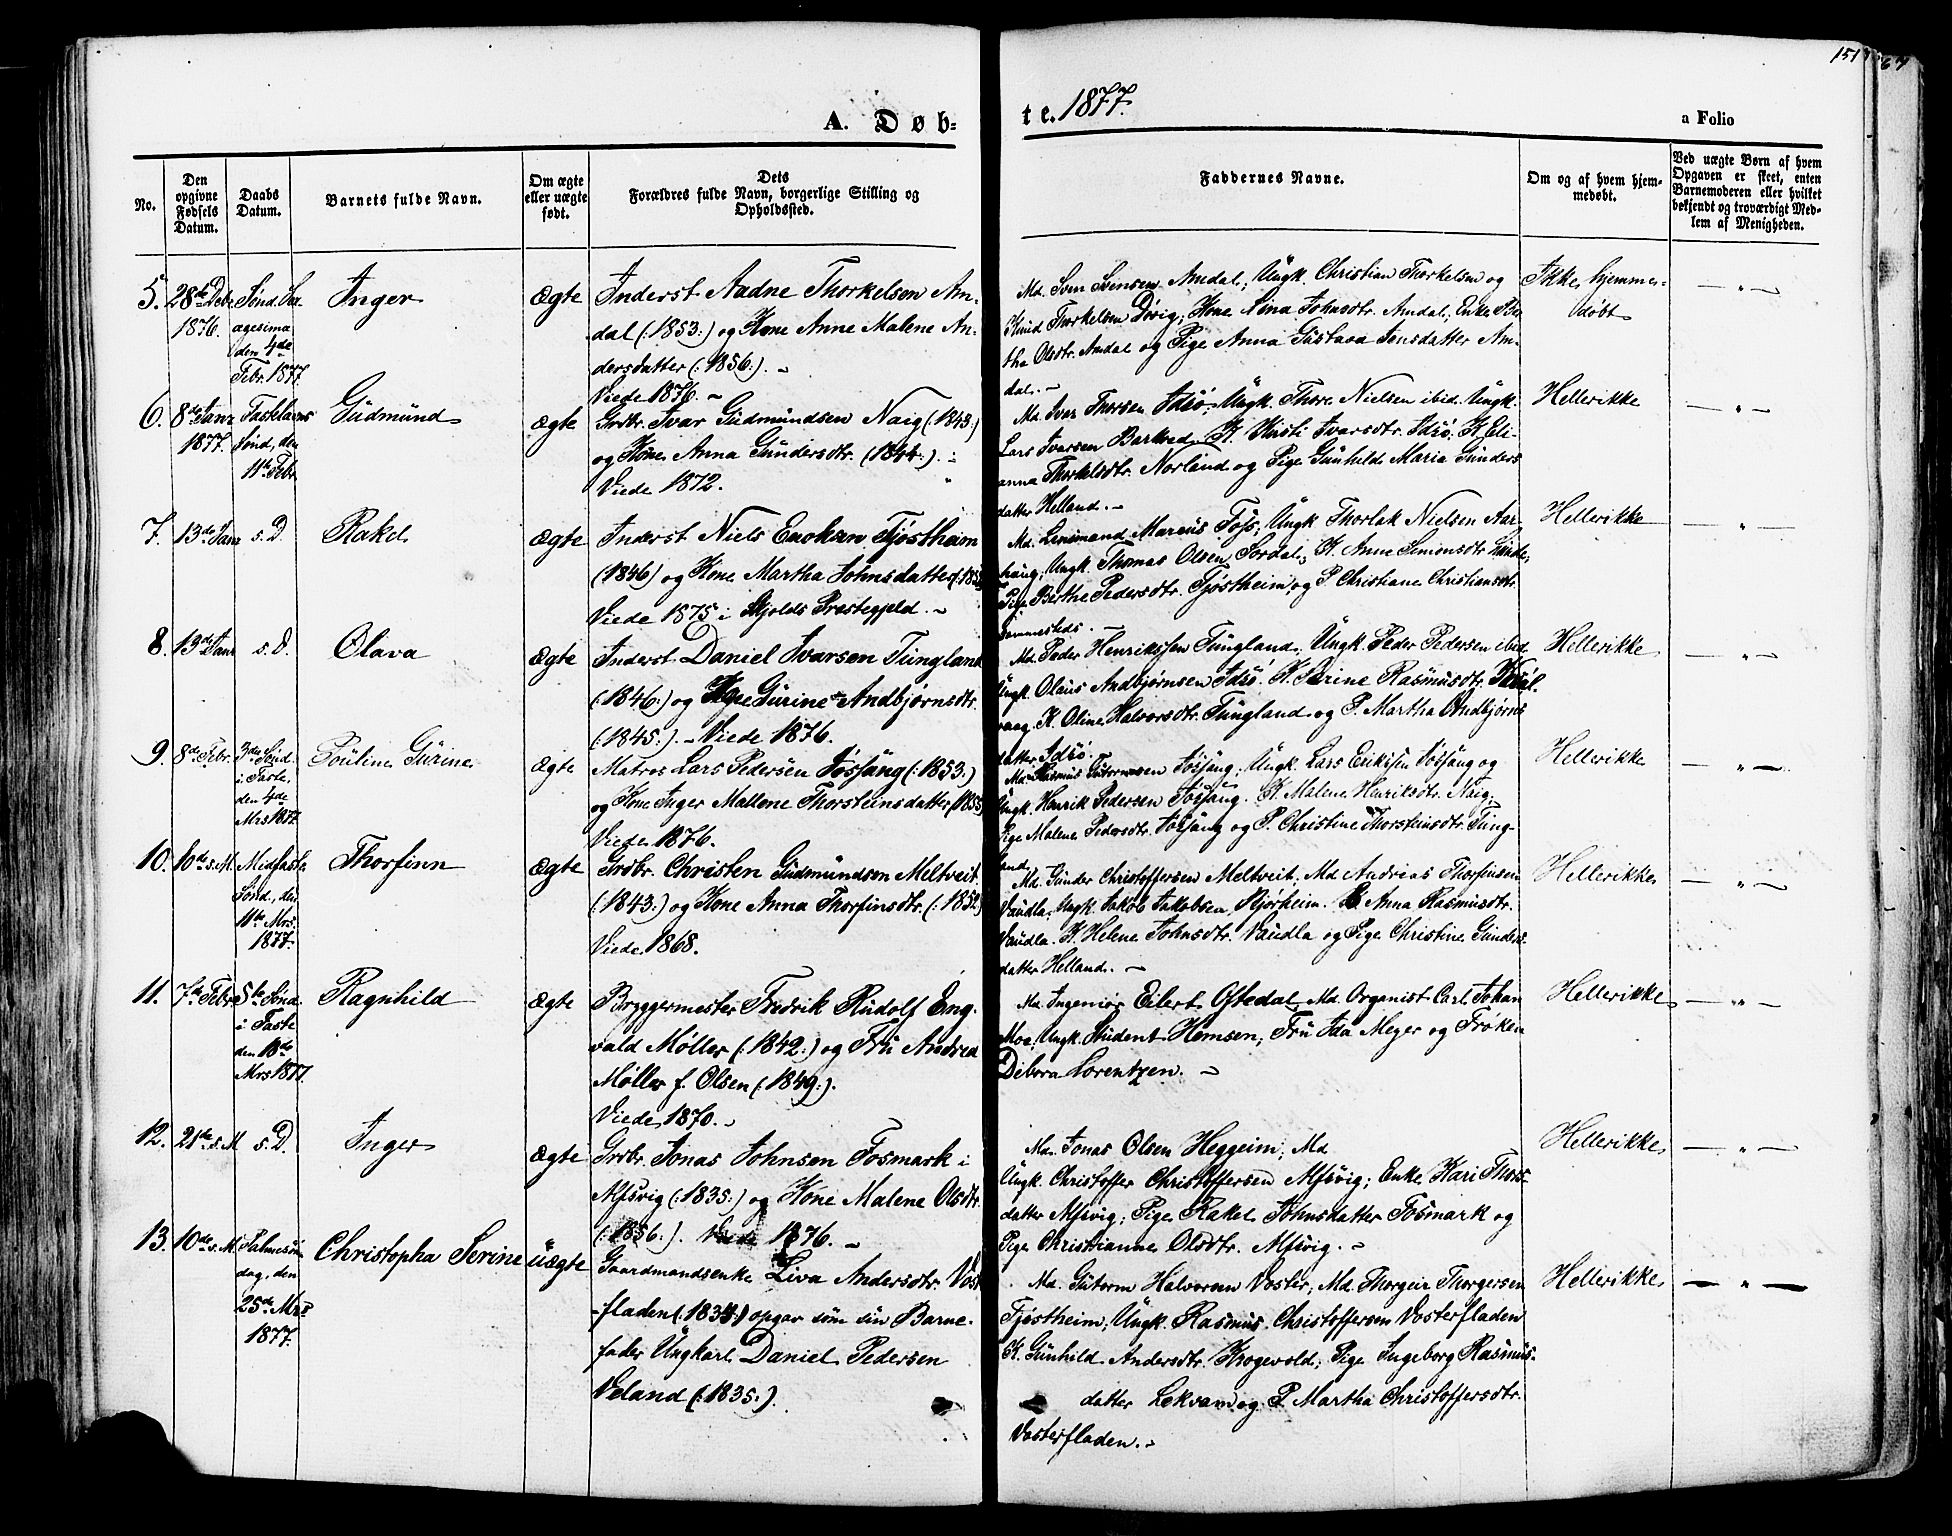 151
67
A. Døb=
te. 1877.
a Folio
No.
Den opgivne Fødsels Datum.
Daabs Datum.
Barnets fulde Navn.
Om ægte eller uægte født.
Dets Forældres fulde Navn, borgerlige Stilling og Opholdssted.
Faddernes Navne.
Om og af hvem hjemmedøbt.
Ved uægte Børn af hvem Opgaven er skeet, enten Barnemoderen eller hvilket bekjendt og troværdigt Medlem af Menigheden.
5.
28de Debr
1876.
Sønd. Sex
agesima
den 4de
Febr. 1877.
Inger
Ægte
Inderst Aadne Thorkelsen Am-
dal (:1853:) og Kone Anne Malene An-
dersdatter (:1856:). -
Viede 1876. -
Md. Sven Svensen Amdal; Ungk. Christian Thorkelsen og
Knud Thorkelsen Døvig; Kone Nina Johnsdtr. Amdal; Enke Ber
tha Olsdtr. Amdal og Pige Anna Gustava Jonsdatter Am-
dal. -
Ikke hjemme-
døbt
— " —
6.
8de Janr
1877.
Fastelavns
Sønd. den
11te Febr.
Gudmund
Ægte
Grdbr. Ivar Gudmundsen Naig (1843:)
og Kone Anna Gundersdtr. (1844:). -
Viede 1872.
Md. Iver Thorsen Idsø; Ungk. Thore Nielsen ibid. Ungk.
Lars Ivarsen Barkved. K. Kirsti Ivarsdtr. Idsø; K. Eli-
anna Thorkelsdtr. Norland og Pige Gunhild Maria Gunders
datter Helland. -
Hellerikke
— " —
7.
13de Janr
s. D.
Rakel
Ægte
Inderst Niels Enoksen Tjøstheim
(1846) og Kone Martha Johnsdatter
Viede 1875 i Skjolds Præstegjeld. -
Md. Lensmand Marcus Føjs; Ungk Thorlak Nielsen Aar-
haug; Ungk. Thomas Olsen Sørdal; K. Anne Simonsdtr.
Pige Berthe Pedersdtr. Tjøstheim og P. Christiane Christiansdtr.
Hellerikke
— " —
8.
19de Janr
s. D.
Olava
Ægte
Inderst Daniel Ivarsen Tungland
(:1846:) og Kone Gurine Andbjørnsdtr.
(:1845:). - Viede 1876.
Md. Peder Henriksen Tungland; Ungk. Peder Pedersen ibid
Ungk. Olaus Andbjørnsen Idsø. K. Serine Rasmusdtr.
vaag. K. Oline Halvorsdtr. Tungland og P. Martha Andbjørns
datter Idsø.
Hellerikke
— " —
9.
8de Febr.
3die Sønd.
i Faste,
den 4de
Mrs 1877.
Pouline Gurine
Ægte
Matros Lars Pedersen Jøsfang (:1853:)
og Kone Inger Mallene Thorsteinsdatter (1855
Viede 1876.
Md. Rasmus Guttormsen Jøsfang; Ungk. Lars Eriksen Jøsfang og
Ungk. Henrik Pedersen Jøsfang. K. Malene Henriksdtr. Naig;
Pige Malene Pedersdtr. Jøsfang og P. Christine Thorsteinsdtr. Tung-
land
Hellerikke
— " —
10.
10de s. M.
Midfaste
Sønd., den
11te Mrs.
1877.
Thorfinn
Ægte
Grdbr. Christen Gudmundsen Meltveit
(:1843:) og Kone Anna Thorfinsdtr. (:1852)
Viede 1868.
Md. Gunder Christoffersen Meltveit; Md Andreas Thorfinsen
Vaudla. Ungk. Jakob Jakobsen Bjørheim. K Anna Rasmusdtr.
Vaudla. K. Helene Johnsdtr. Vaudla og Pige Christine Gunders
datter Helland. -
Hellerikke
— " —
11.
7de Febr
5te Sønd.
i Faste
den 18de
Mrs 1877.
Ragnhild
Ægte
Bryggermester Fredrik Rudolf Eng-
vald Møller (:1842:) og Fru Andrea
Møller f. Olsen (:1849:).
Viede 1870. -
Md. Ingeniør Eilert Oftedal, Md. Organist Carl Johan
Moe; Ungk. Student Hemsen; Fru Ida Meyer og Frøken
Debora Lorentzen. -
Hellerikke
— " —
12.
21de s. M
s. D.
Inger
Ægte
Grdbr. Jonas Johnsen Fosmark i
Alfsvig (:1835:) og Kone Malene Olsdtr.
(:1856:). Viede 1876. -
Md. Jonas Olsen Heggeim; Md
Ungk. Christoffer Christoffersen Alfsvig; Enke Kari Thors-
datter Alfsvig; Pige Rakel Johnsdatter Fosmark og
Pige Christianne Olsdtr. Alfsvig. -
Hellerikke
— " —
13.
10de s. M.
Palmesøn-
dag, den
25de Mrs
1877.
Christopha Serine
uægte
Gaardmandsenke Liva Andersdtr. Vost
-fladen (:1834:) opgav som sin Barne-
fader Ungkarl Daniel Pedersen
Veland (:1835:).
Md. Gutorm Halvorsen Voster; Md. Thorgeir Thorgersen
Tjøstheim; Ungk. Rasmus Christoffersen Vosterfladen
K. Gunhild Andersdtr. Krogevold; Pige Ingeborg Rasmus-
datter Lekvam og P. Martha Christoffersdtr.
Vosterfladen. -
Hellerikke
— " —